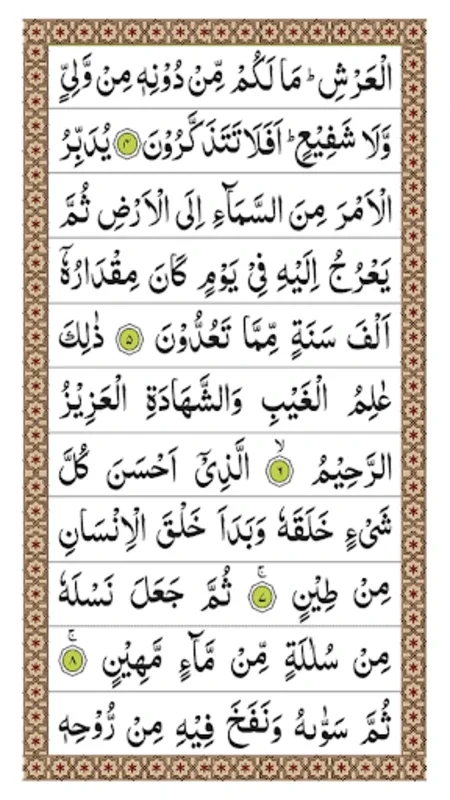 الْعَرْشِ ؕ مَا لَكُمْ مِّنْ دُوْنِهٖ مِنْ وَّلِیٍّ
وَّلَا شَفِیْعٍ ؕ اَفَلَا تَتَذَكَّرُوْنَ ۴ یُدَبِّرُ
الْاَمْرَ مِنَ السَّمَآءِ اِلَی الْاَرْضِ ثُمَّ
یَعْرُجُ اِلَیْهِ فِیْ یَوْمٍ كَانَ مِقْدَارُهٗۤ
اَلْفَ سَنَةٍ مِّمَّا تَعُدُّوْنَ ۵ ذٰلِكَ
عٰلِمُ الْغَیْبِ وَالشَّهَادَةِ الْعَزِیْزُ
الرَّحِیْمُ ۶ۙ الَّذِیْۤ اَحْسَنَ كُلَّ
شَیْءٍ خَلَقَهٗ وَبَدَاَ خَلْقَ الْاِنْسَانِ
مِنْ طِیْنٍ ۷ۚ ثُمَّ جَعَلَ نَسْلَهٗ
مِنْ سُلٰلَةٍ مِّنْ مَّآءٍ مَّهِیْنٍ ۸ۚ
ثُمَّ سَوّٰىهُ وَنَفَخَ فِیْهِ مِنْ رُّوْحِهٖ